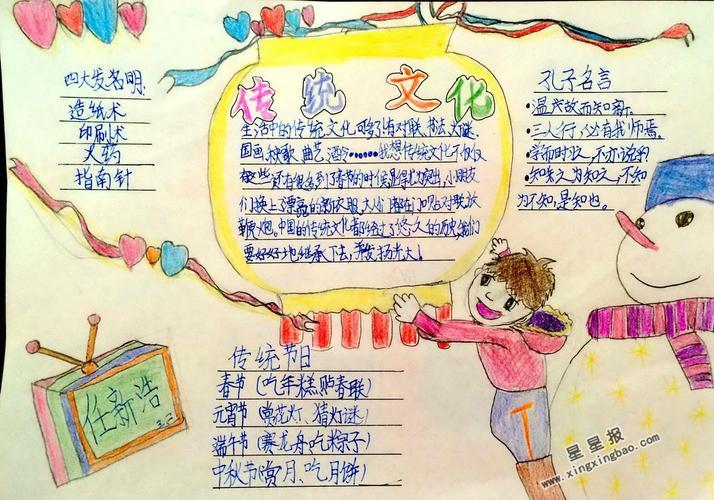 传统文化
四大发名明:
造纸术
印刷术
火药
指南针
生活中的传统文化可多了有对联、书法、灯谜、
国画、秧歌、曲艺、酒令……我想传统文化不仅仅
有这些还有很多到了春节的时候显得尤为突出,小朋友
们换上了漂亮的新衣服,大人们都在门口贴对联放
鞭炮。中国的传统文化都经过了悠久的历史,我们
要好好地继承下去,并发扬光大!
孔子名言
·温故而知新。
·三人行,必有我师焉。
·学而时习之,不亦说乎
·知之为知之,不知
为不知,是知也。
传统节日
春节(吃年糕贴春联)
元宵节(赏花灯、猜灯谜)
端午节(赛龙舟吃粽子)
中秋节(赏月、吃月饼)
任新浩
T
星星报
www.xingxingbao.com